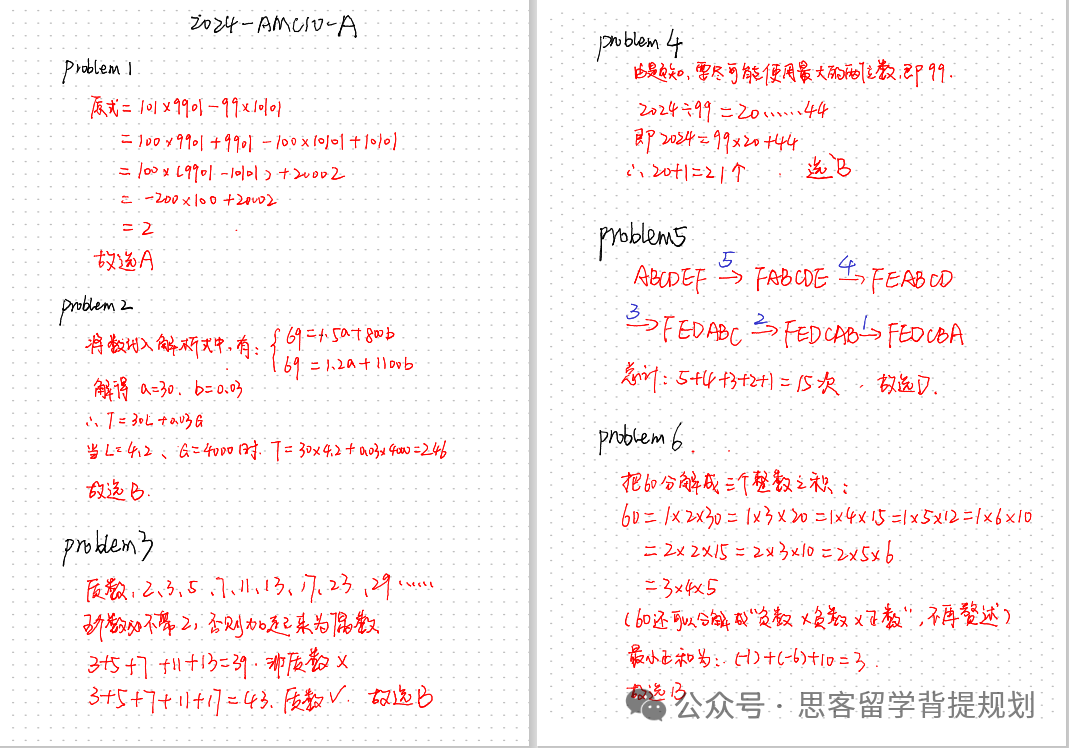 2024-AMC10-A
problem 1
原式 = 101×9901-99×10101
= 100×9901+9901-100×10101+10101
= 100×(9901-10101)+20002
= -200×100+20002
= 2
故选A
problem 2
将数代入解析式中,有: { 69=1.5a+800b
69=1.2a+1100b
解得 a=30、b=0.03
∴T=30L+0.03G
当L=4.2、G=4000时. T=30×4.2+0.03×4000=246
故选B.
problem 3
质数:2、3、5、7、11、13、17、23、29……
5个数的不带2,否则加起来为偶数
3+5+7+11+13=39. 非质数 ×
3+5+7+11+17=43. 质数√. 故选B
problem 4
由题知,要尽可能使用最大的两位数,即99.
2024÷99=20……44
即2024=99×20+44
∴20+1=21个. 选B
problem5
ABCDEF 5→ FABCDE 4→ FEABCD
3→ FEDABC 2→ FEDCAB 1→ FEDCBA
总计:5+4+3+2+1=15次. 故选D.
problem 6
把60分解成三个整数之积:
60=1×2×30=1×3×20=1×4×15=1×5×12=1×6×10
=2×2×15=2×3×10=2×5×6
=3×4×5
(60还可以分解成"负数×负数×正数",不再赘述)
最小正和为:(-1)+(-6)+10=3.
故选B
公众号·思客留学背提规划